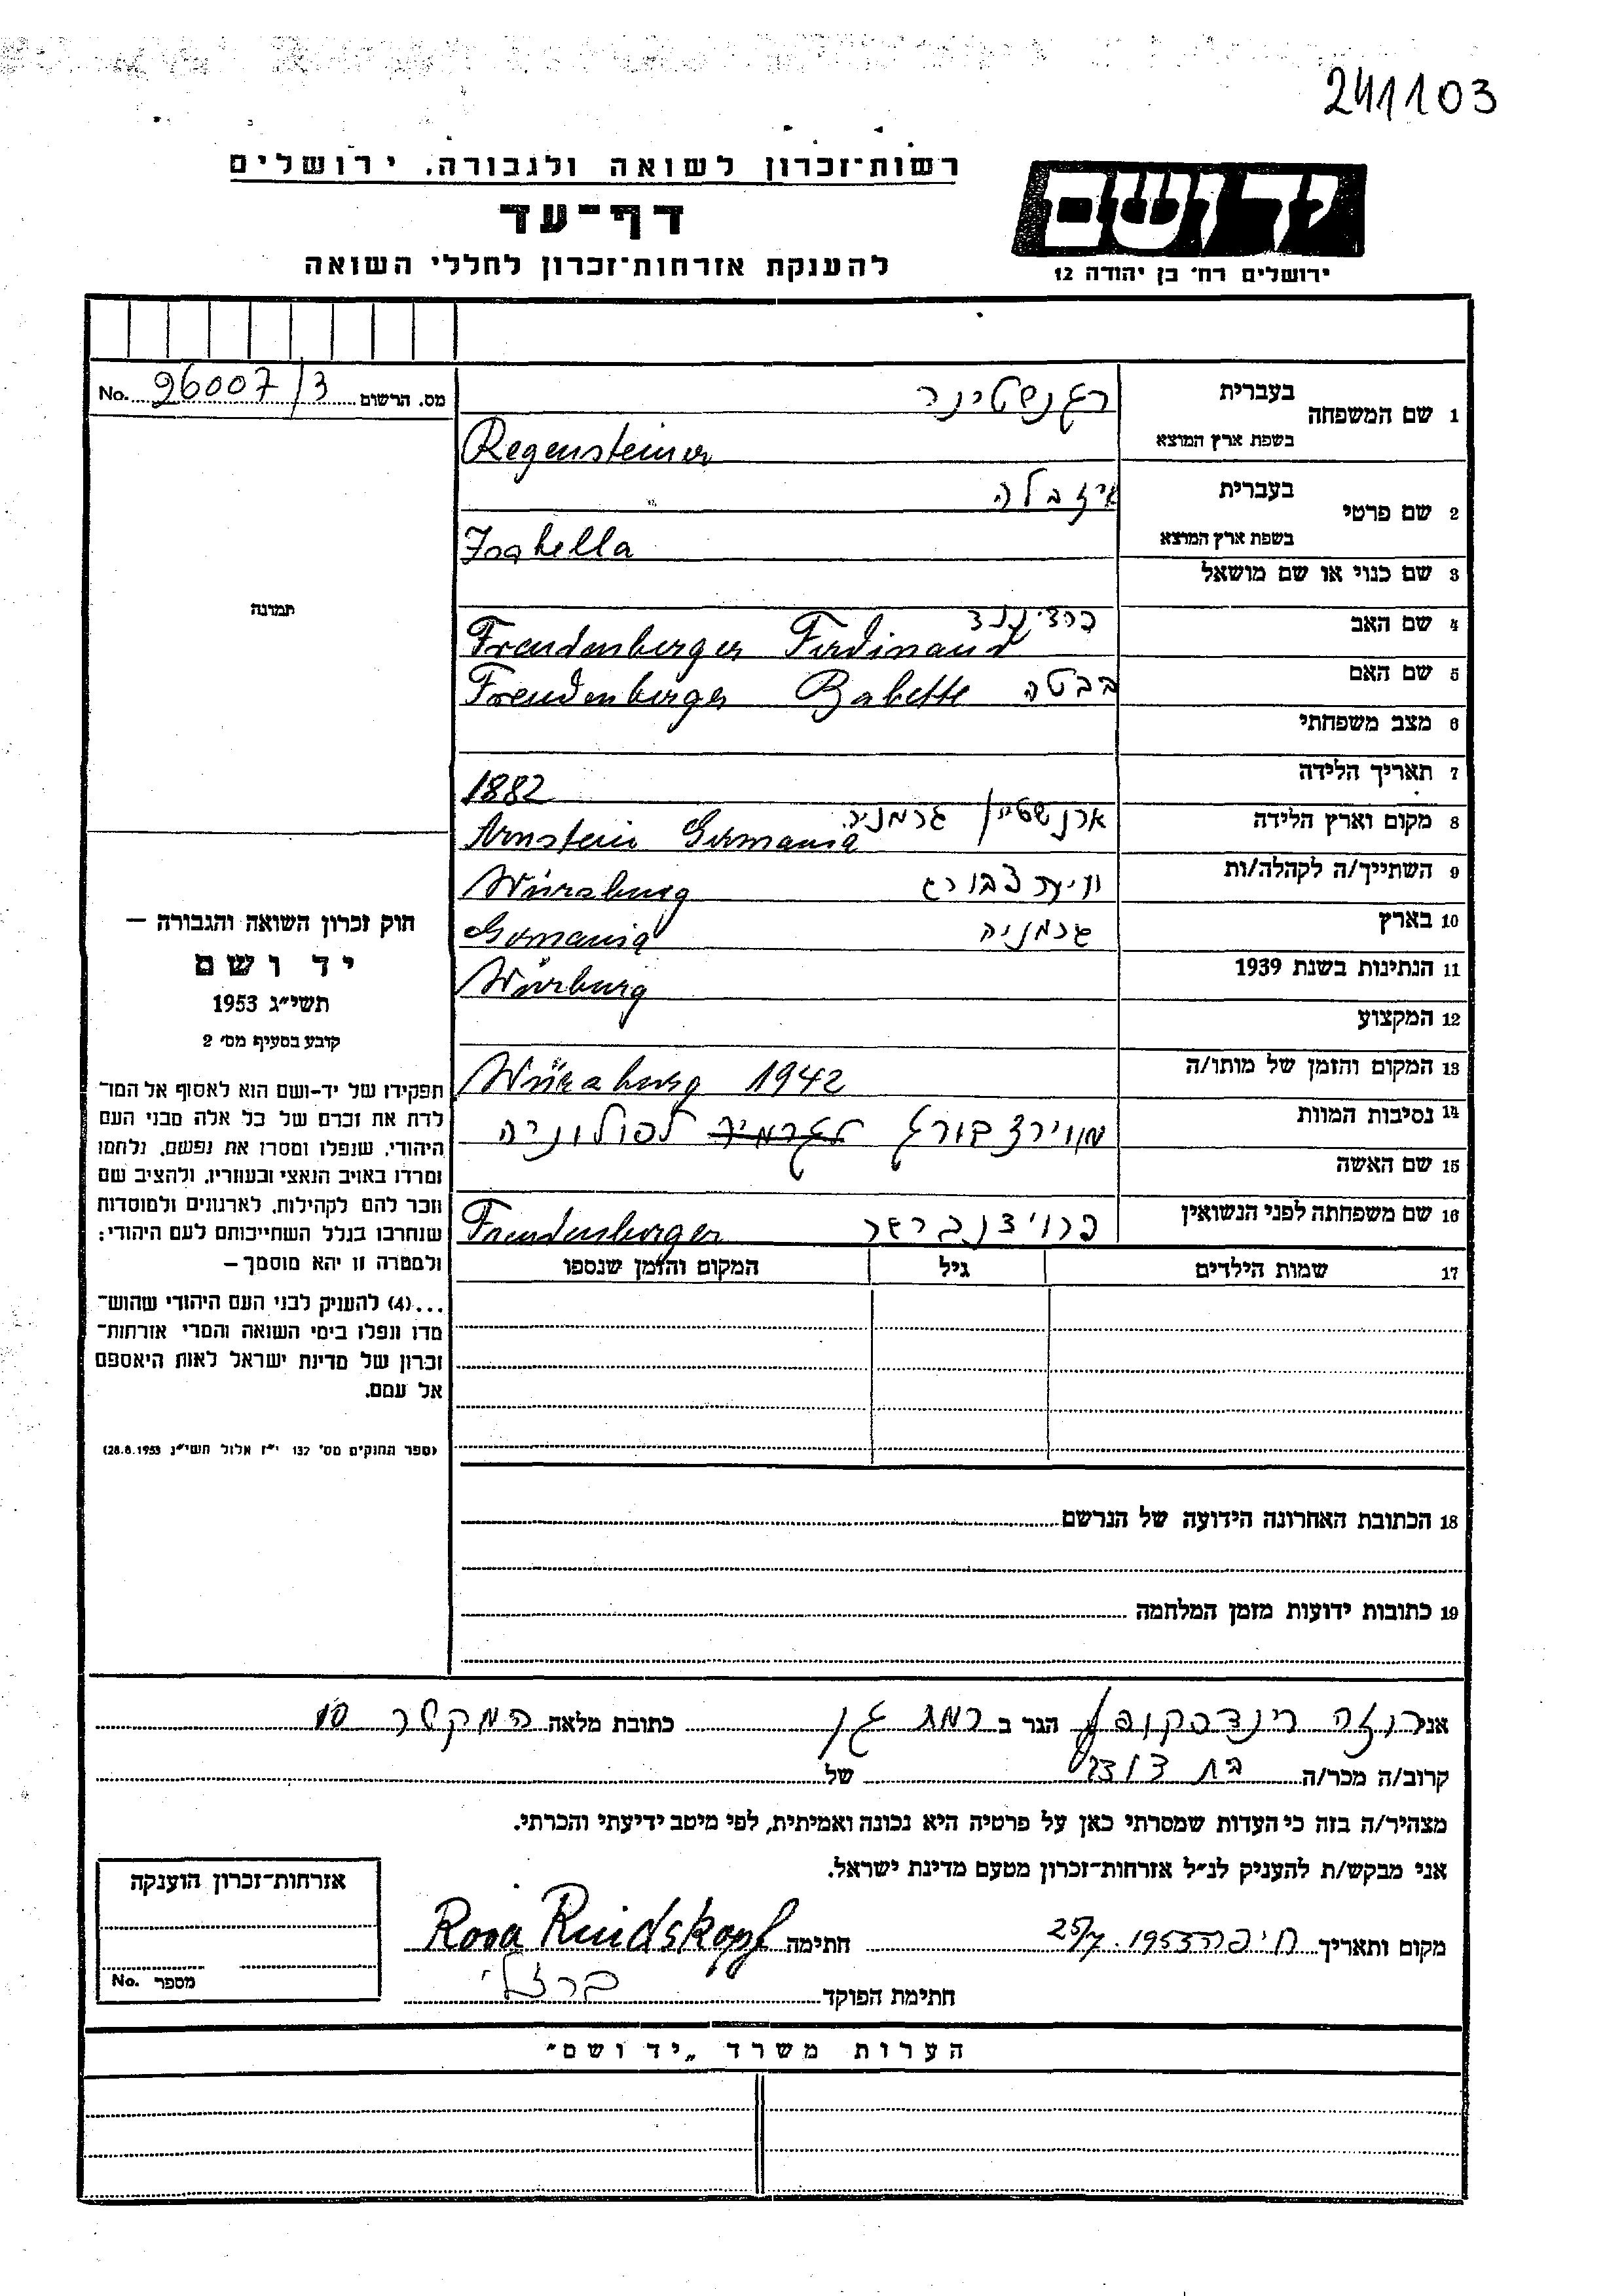 241103
רשות-זכרון לשואה ולגבורה, ירושלים
דף-עד
להענקת אזרחות-זכרון לחללי השואה
יד ושם
ירושלים רח' בן יהודה 12
מס. הרשום 26007/3 No.
1 שם המשפחה
בעברית רגנשטינר
בשפת ארץ המוצא Regensteiner
2 שם פרטי
בעברית איזבלה
בשפת ארץ המוצא Isabella
3 שם כנוי או שם מושאל
4 שם האב פרדיננד
Freudenberger Ferdinand
5 שם האם בבטה
Freudenberger Babette
6 מצב משפחתי
7 תאריך הלידה 1882
8 מקום וארץ הלידה ארנשטיין גרמניה
Arnstein Germania
9 השתייך/ה לקהלה/ות
Würzburg
10 בארץ גרמניה
Germania
11 הנתינות בשנת 1939
12 המקצוע
13 המקום והזמן של מותו/ה Würzburg 1942
14 נסיבות המוות מווירצבורג לפולוניה
15 שם האשה
16 שם משפחתה לפני הנשואין
Freudenberger
17 שמות הילדים גיל המקום והזמן שנספו
תמונה
חוק זכרון השואה והגבורה –
יד ושם
תשי״ג 1953
קובע בסעיף מס' 2
תפקידו של יד-ושם הוא לאסוף אל המו-
לדת את זכרם של כל אלה מבני העם
היהודי, שנפלו ומסרו את נפשם, נלחמו
ומרדו באויב הנאצי ובעוזריו, ולהציב שם
וזכר להם לקהילות, לארגונים ולמוסדות
שנחרבו בגלל השתייכותם לעם היהודי;
ולמטרה זו יהא מוסמך –
...(4) להעניק לבני העם היהודי שהוש-
מדו ונפלו בימי השואה והמרי אזרחות-
זכרון של מדינת ישראל לאות היאספם
אל עמם.
(ספר החוקים מס' 132 י״ז אלול תשי״ג 28.8.1953)
18 הכתובת האחרונה הידועה של הנרשם
19 כתובות ידועות מזמן המלחמה
אני רוזה רינדסקופף הגר ב רמת גן כתובת מלאה המקשר 10
קרוב/ה מכר/ה בת דודה של
מצהיר/ה בזה כי העדות שמסרתי כאן על פרטיה היא נכונה ואמיתית, לפי מיטב ידיעתי והכרתי.
אני מבקש/ת להעניק לנ״ל אזרחות-זכרון מטעם מדינת ישראל.
מקום ותאריך חיפה חתימה Rosa Rindskopf
חתימת הפוקד ברזלי
אזרחות-זכרון הוענקה
מספר No.
הערות משרד „יד ושם״